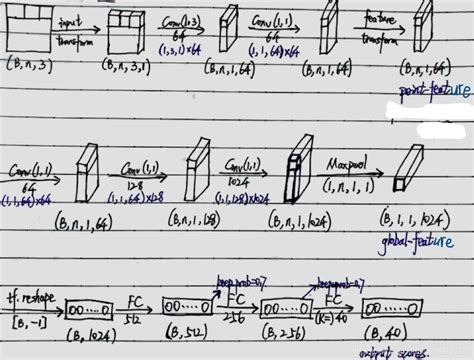 input
transform
Conv(1,3)
64
(1,3,1)×64
Conv(1,1)
64
(1,1,64)×64
feature
transform
(B,n,3)
(B,n,3,1)
(B,n,1,64)
(B,n,1,64)
(B,n,1,64)
point-feature
Conv(1,1)
64
(1,1,64)×64
Conv(1,1)
128
(1,1,64)×128
Conv(1,1)
1024
(1,1,128)×1024
Maxpool
(1,n,1,1)
(B,n,1,64)
(B,n,1,128)
(B,n,1,1024)
(B,1,1,1024)
global-feature
tf.reshape
[B,-1]
00...0
FC
512
00...0
keep.prob=0.7
FC
256
00...0
keep.prob=0.7
FC
(k=)40
00...0
(B,1024)
(B,512)
(B,256)
(B,40)
output scores